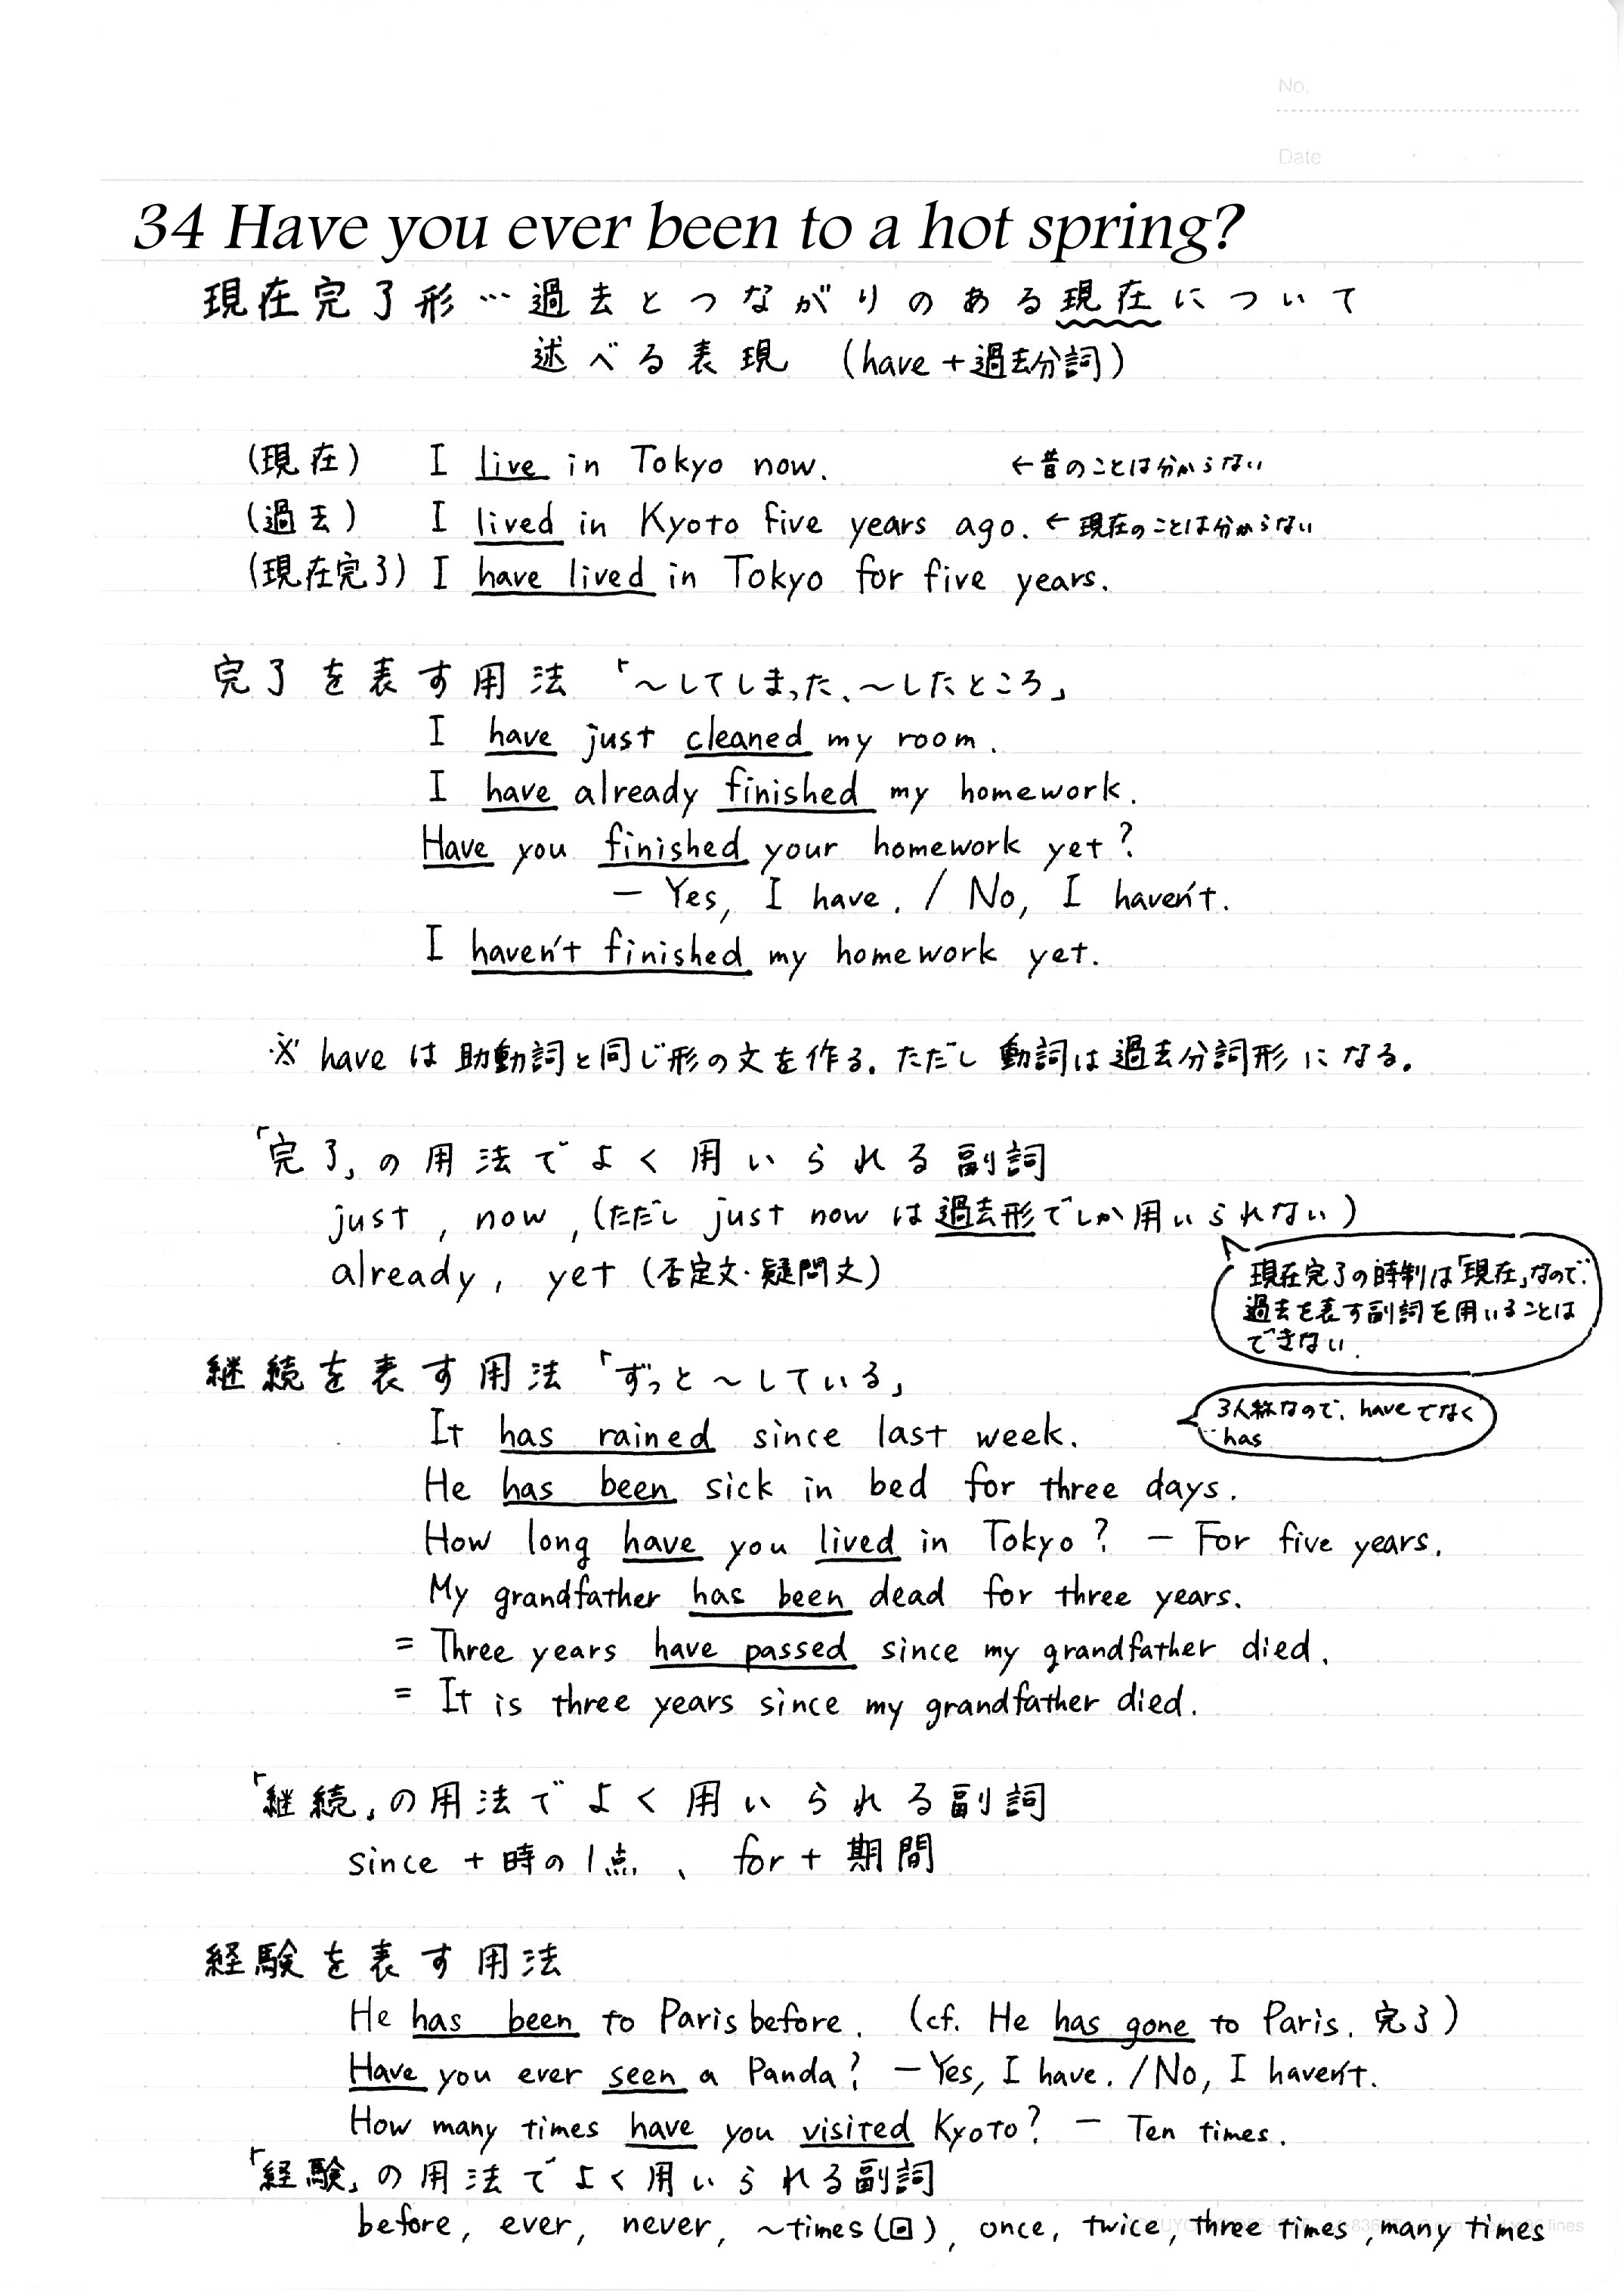 No.
Date
34 Have you ever been to a hot spring?
現在完了形…過去とつながりのある現在について
述べる表現 (have+過去分詞)
(現在) I live in Tokyo now. ←昔のことは分からない
(過去) I lived in Kyoto five years ago. ←現在のことは分からない
(現在完了) I have lived in Tokyo for five years.
完了を表す用法 「～してしまった、～したところ」
I have just cleaned my room.
I have already finished my homework.
Have you finished your homework yet?
— Yes, I have. / No, I haven't.
I haven't finished my homework yet.
※ have は助動詞と同じ形の文を作る。ただし動詞は過去分詞形になる。
「完了」の用法でよく用いられる副詞
just, now, (ただし just now は過去形でしか用いられない)
already, yet (否定文・疑問文)
現在完了の時制は「現在」なので、
過去を表す副詞を用いることは
できない.
継続を表す用法 「ずっと～している」
3人称なので、have でなく
has
It has rained since last week.
He has been sick in bed for three days.
How long have you lived in Tokyo? — For five years.
My grandfather has been dead for three years.
= Three years have passed since my grandfather died.
= It is three years since my grandfather died.
「継続」の用法でよく用いられる副詞
since + 時の1点、 for + 期間
経験を表す用法
He has been to Paris before. (cf. He has gone to Paris. 完了)
Have you ever seen a Panda? — Yes, I have. / No, I haven't.
How many times have you visited Kyoto? — Ten times.
「経験」の用法でよく用いられる副詞
before, ever, never, ～times(回), once, twice, three times, many times